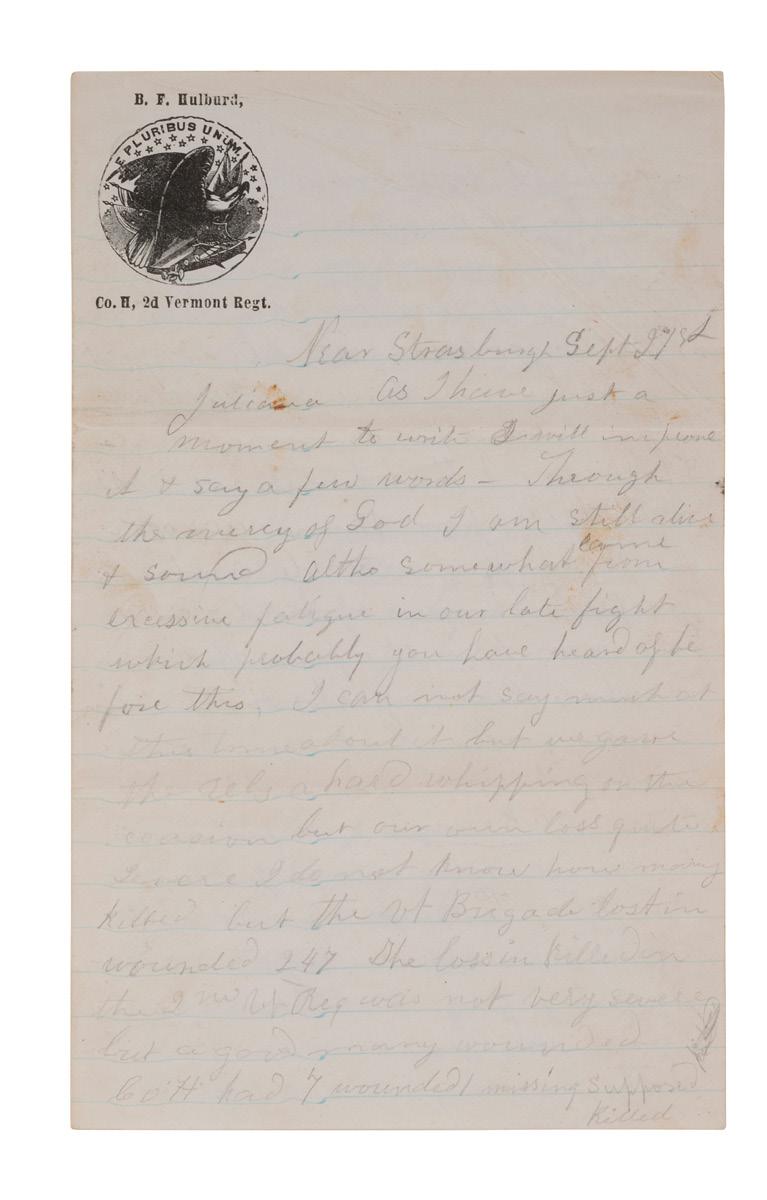 B. F. Hulburd,
E PLURIBUS UNUM
Co. H, 2d Vermont Regt.
Near Strasburgh Sept 21st
Juliana As I have just a
moment to write I will improve
it & say a few words – Through
the mercy of God I am still alive
& sound altho somewhat lame from
excessive fatigue in our late fight
which probably you have heard of be
fore this. I can not say much at
this time about it but we gave
the rebs a hard whipping on the
occasion but our own loss quite
severe I do not know how many
killed but the Vt Brigade lost in
wounded 247 The loss in killed in
the 2nd Vt Reg was not very severe
but a good many wounded
Co H had 7 wounded 1 missing supposed
killed